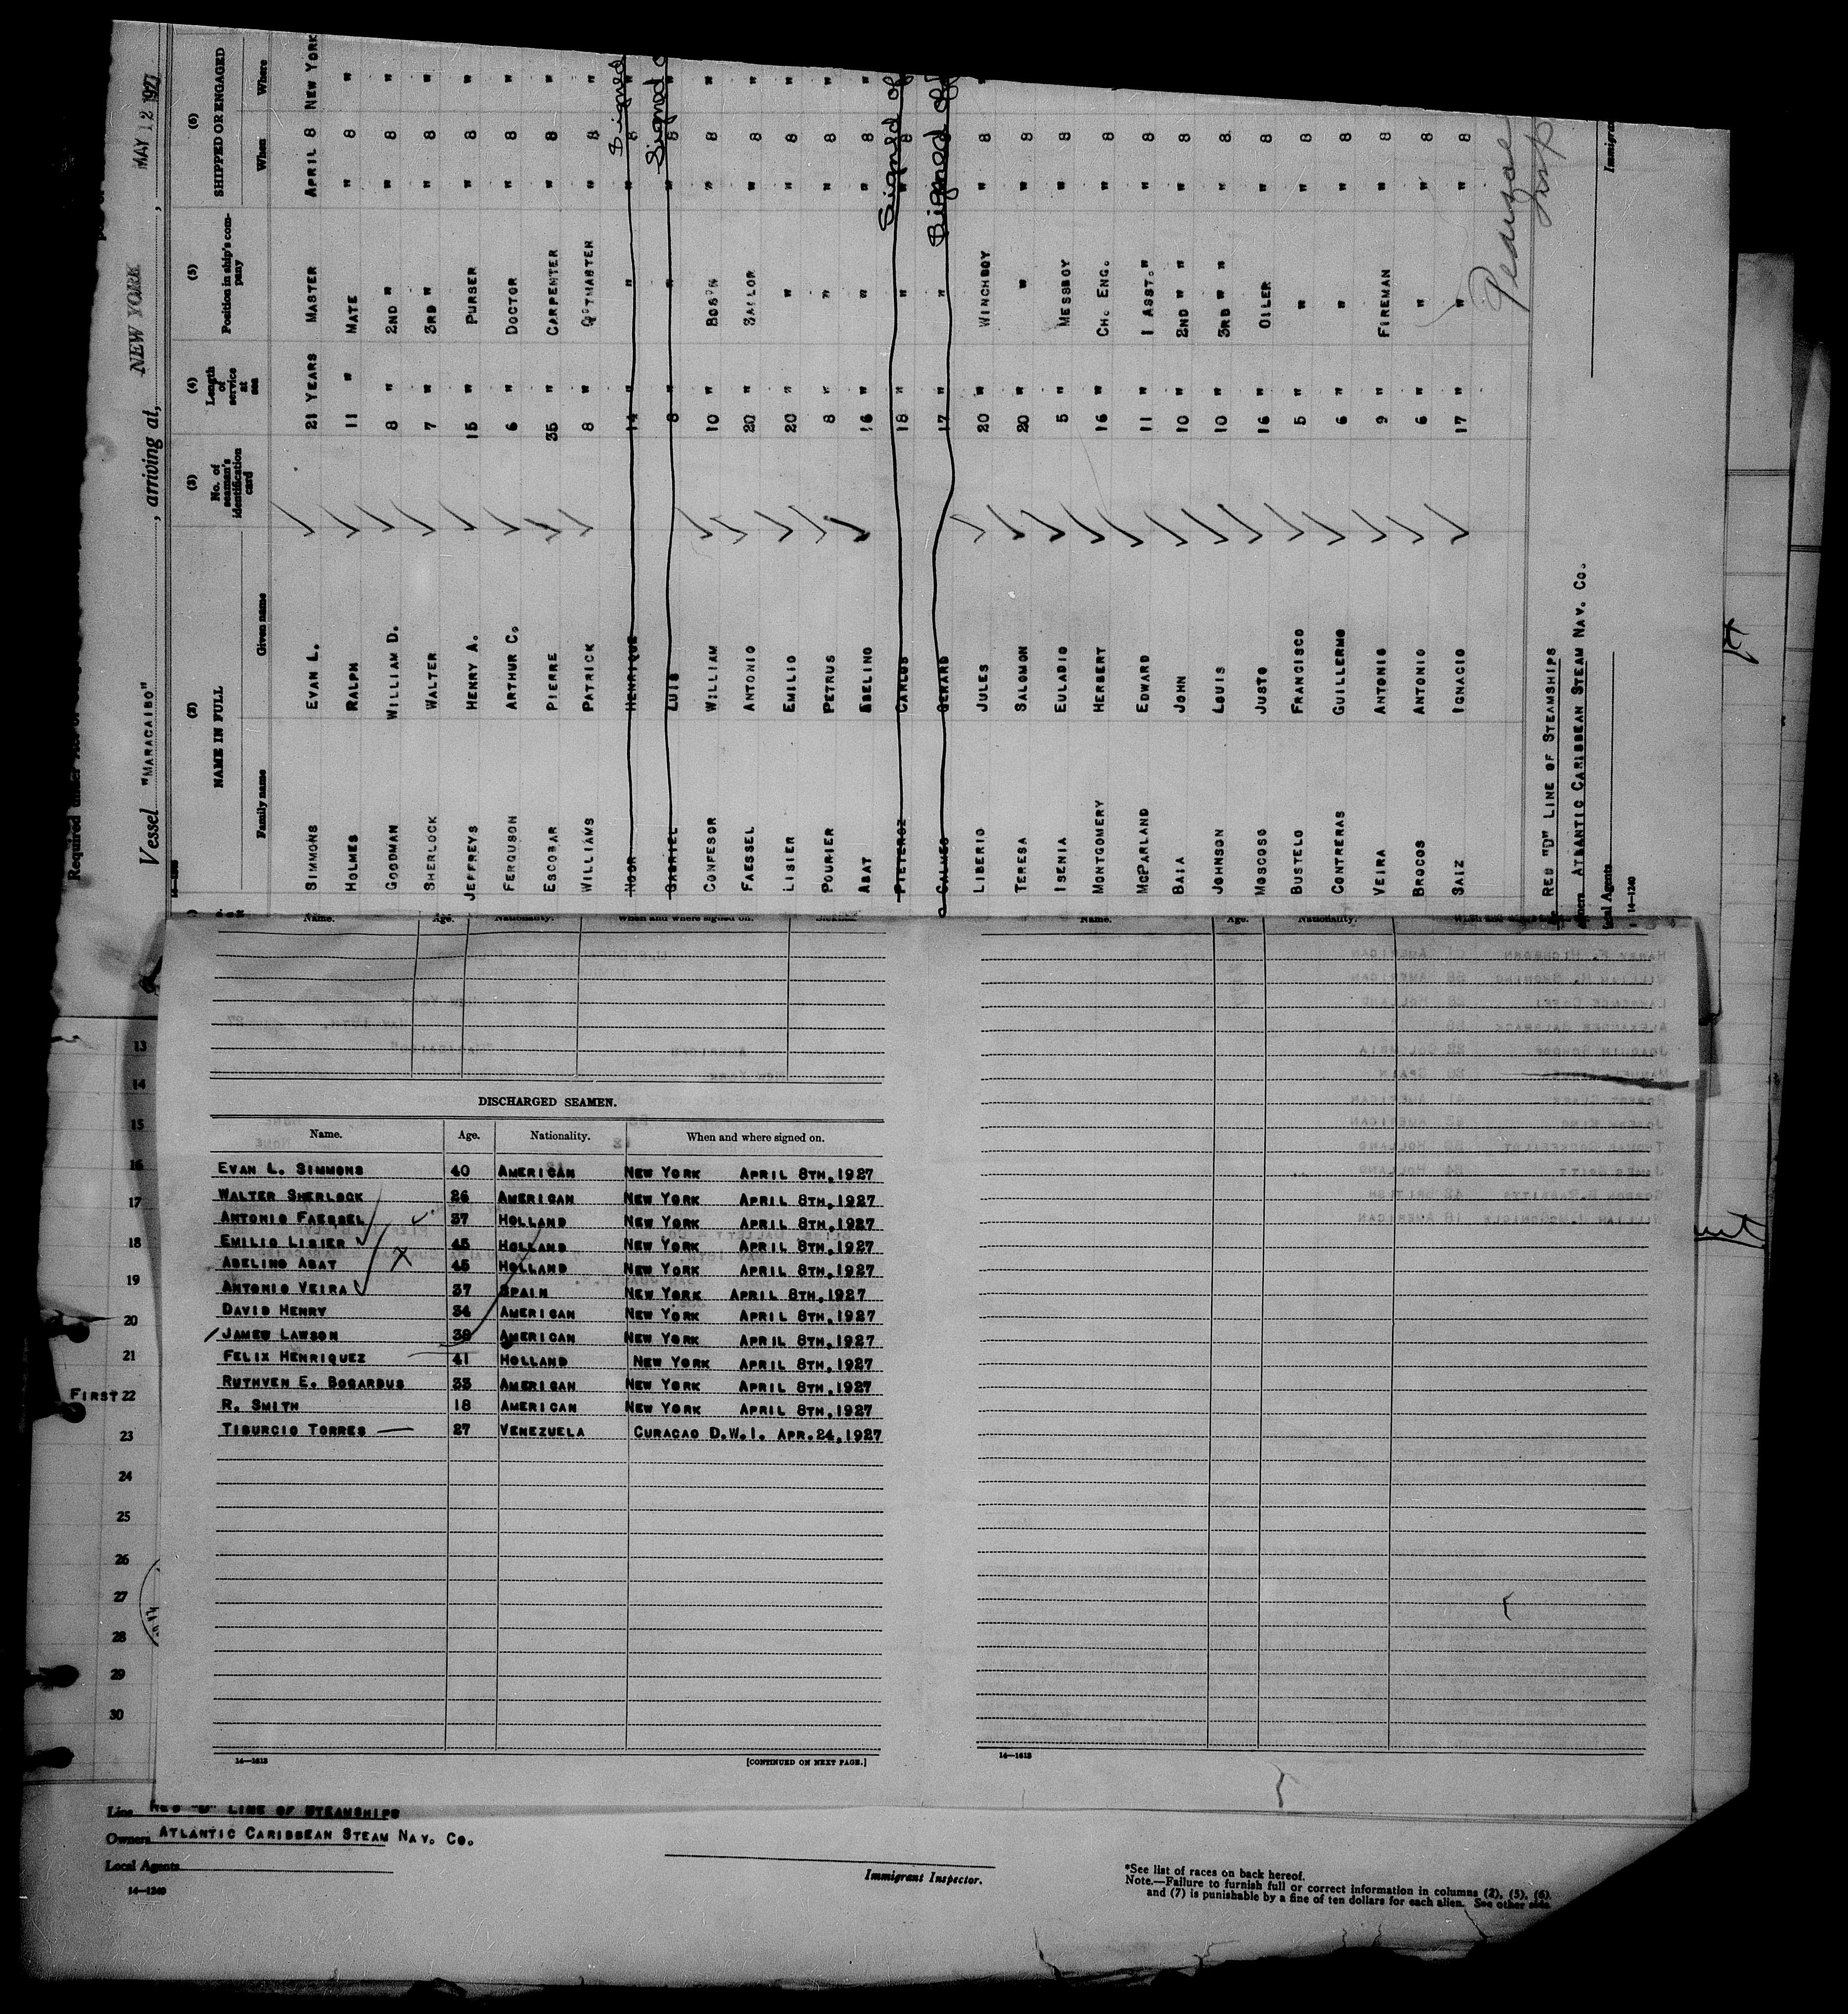 Vessel "MARACAIBO", arriving at, NEW YORK, MAY 12 1927
(2) NAME IN FULL (3) No. of seaman's identification card (4) Length of service at sea (5) Position in ship's company (6) SHIPPED OR ENGAGED
Family name Given name When Where
SIMMONS EVAN L. 21 YEARS MASTER APRIL 8 NEW YORK
HOLMES RALPH 11 " MATE " 8 "
GOODMAN WILLIAM D. 8 " 2ND " " 8 "
SHERLOCK WALTER 7 " 3RD " " 8 "
JEFFREYS HENRY A. 15 " PURSER " 8 "
FERGUSON ARTHUR C. 6 " DOCTOR " 8 "
ESCOBAR PIERRE 35 " CARPENTER " 8 "
WILLIAMS PATRICK 8 " QRTMASTER " 8 "
NOOR HENRIQUE 14 " " " 8 " Signed
GABRIEL LUIS 8 " " " 8 " Signed o
CONFESOR WILLIAM 10 " BOS'N " 8 "
FAESSEL ANTONIO 20 " SAILOR " 8 "
LISIER EMILIO 20 " " " 8 "
POURIER PETRUS 8 " " " 8 "
ABAT ABELINO 16 " " " 8 "
PIETERSZ CARLOS 18 " " " 8 " Signed of
CALMES GERARD 17 " " Signed of
LIBERIO JULES 20 " WINCHBOY " 8 "
TERESA SALOMON 20 " " " 8
ISENIA EULADIO 5 " MESSBOY " 8
MONTGOMERY HERBERT 16 " CH. ENG. " 8
MCPARLAND EDWARD 11 " 1 ASST. " " 8
BAIA JOHN 10 " 2ND " " " 8
JOHNSON LOUIS 10 " 3RD " " " 8
MOSCOSO JUSTO 16 " OILER " 8
BUSTELO FRANCISCO 5 " " " 8
CONTRERAS GUILLERMO 6 " " " 8
VEIRA ANTONIO 9 " FIREMAN " 8
BROCOS ANTONIO 6 " " " 8
SAIZ IGNACIO 17 " " " 8
RED "D" LINE OF STEAMSHIPS
ATLANTIC CARIBBEAN STEAM NAV. CO.
Agents
14—1240
Name. Age. Nationality. When and where signed on.
Name. Age. Nationality.
DISCHARGED SEAMEN.
Name. Age. Nationality. When and where signed on.
EVAN L. SIMMONS 40 AMERICAN NEW YORK APRIL 8TH,1927
WALTER SHERLOCK 26 AMERICAN NEW YORK APRIL 8TH,1927
ANTONIO FAESSEL 37 HOLLAND NEW YORK APRIL 8TH,1927
EMILIO LISIER 45 HOLLAND NEW YORK APRIL 8TH,1927
ABELINO ABAT X 45 HOLLAND NEW YORK APRIL 8TH,1927
ANTONIO VEIRA 37 SPAIN NEW YORK APRIL 8TH,1927
DAVID HENRY 34 AMERICAN NEW YORK APRIL 8TH,1927
JAMES LAWSON 39 AMERICAN NEW YORK APRIL 8TH,1927
FELIX HENRIQUEZ 41 HOLLAND NEW YORK APRIL 8TH,1927
RUTHVEN E. BOGARDUS 33 AMERICAN NEW YORK APRIL 8TH,1927
R. SMITH 18 AMERICAN NEW YORK APRIL 8TH,1927
TIBURCIO TORRES 27 VENEZUELA CURACAO D.W.I. APR.24,1927
14—1613 [CONTINUED ON NEXT PAGE.]
14—1613
13
14
15
16
17
18
19
20
21
FIRST 22
23
24
25
26
27
28
29
30
Line RED "D" LINE OF STEAMSHIPS
Owners ATLANTIC CARIBBEAN STEAM NAV. CO.
Local Agents
14—1240
Immigrant Inspector.
*See list of races on back hereof.
Note.—Failure to furnish full or correct information in columns (2), (5), (6),
and (7) is punishable by a fine of ten dollars for each alien. See other side.